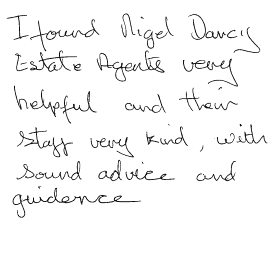 I found Nigel Darcy
Estate Agents very
helpful and their
staff very kind, with
sound advice and
guidence